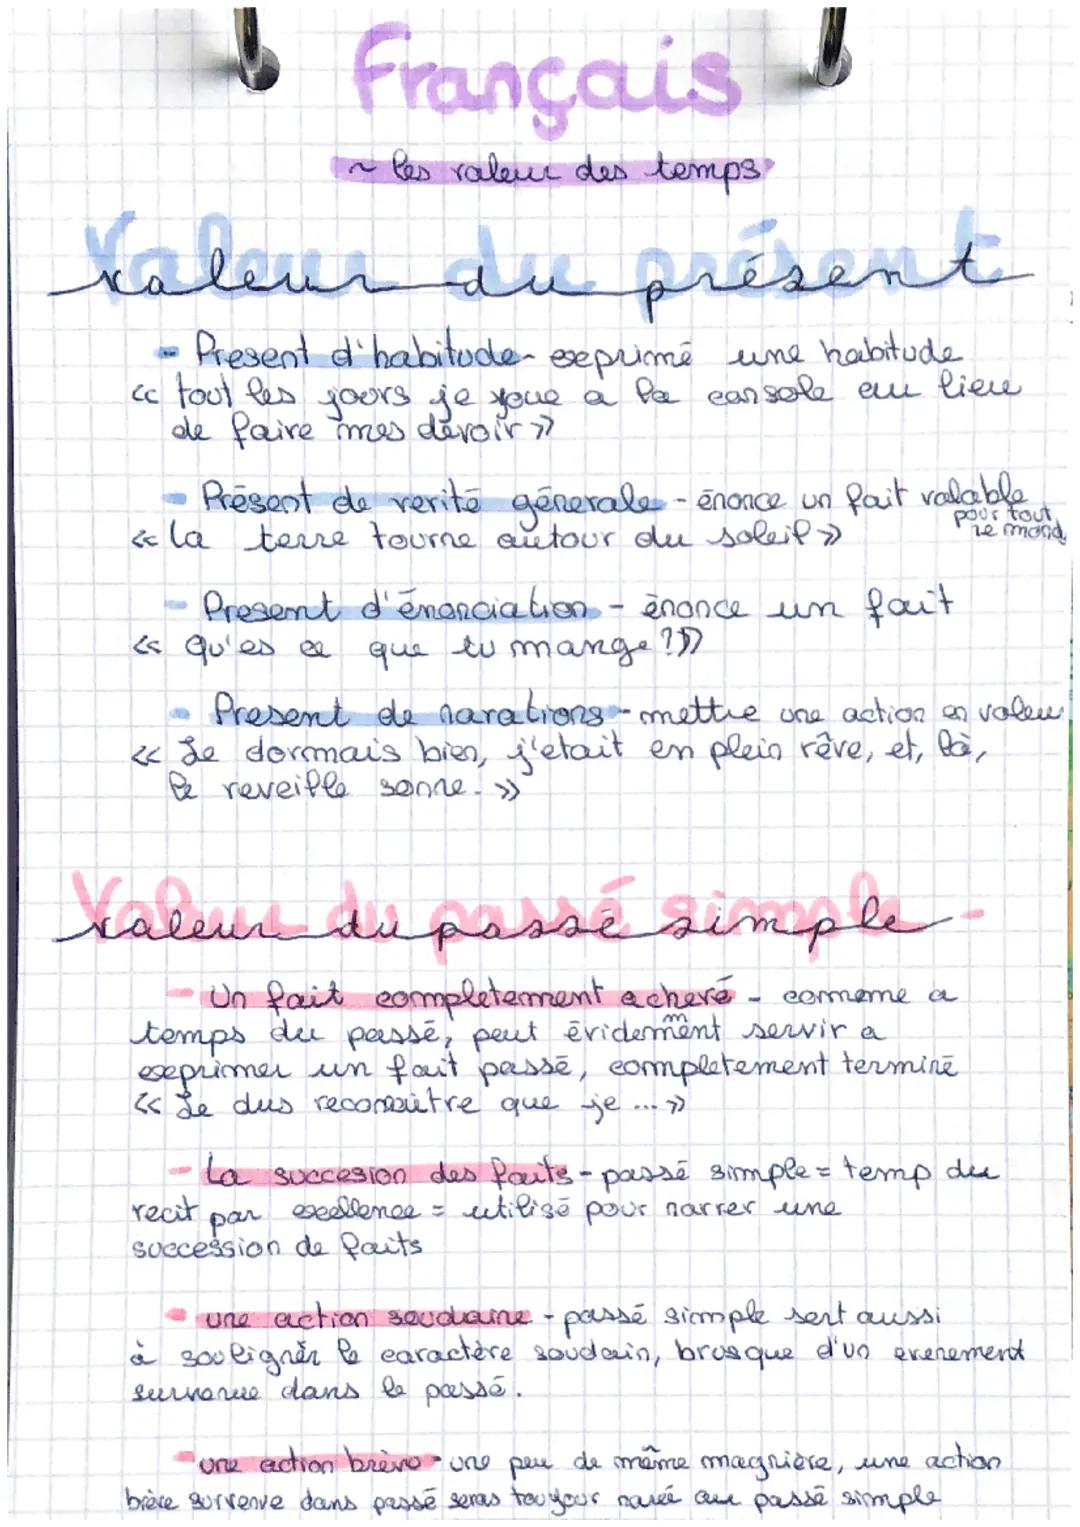 Français
~ les valeur des temps
Valeur du présent
- Present d'habitude - exprimé une habitude
« tout les jours je joue a la console au lieu
de faire mes devoir »
- Présent de verité génerale - énonce un fait valable
pour tout
le mond
« la terre tourne autour du soleil »
- Present d'énonciation - énonce un fait
« Qu'es ce que tu mange ? »
- Present de narations - mettre une action en valeur
« Je dormais bien, j'etait en plein rêve, et, là,
le reveille sonne. »
Valeur du passé simple
- Un fait completement achevé - comme a
temps du passé, peut évidemment servir a
exprimer un fait passé, completement terminé
« Je dus reconnaitre que je ... »
- La succesion des faits - passé simple = temp du
recit par excellence = utilisé pour narrer une
succession de faits
- une action soudaine - passé simple sert aussi
à souligner le caractère soudain, brusque d'un evenement
survenue dans le passé.
- une action brève - une peu de même magnière, une action
brève survenve dans passé seras toujour narré au passé simple